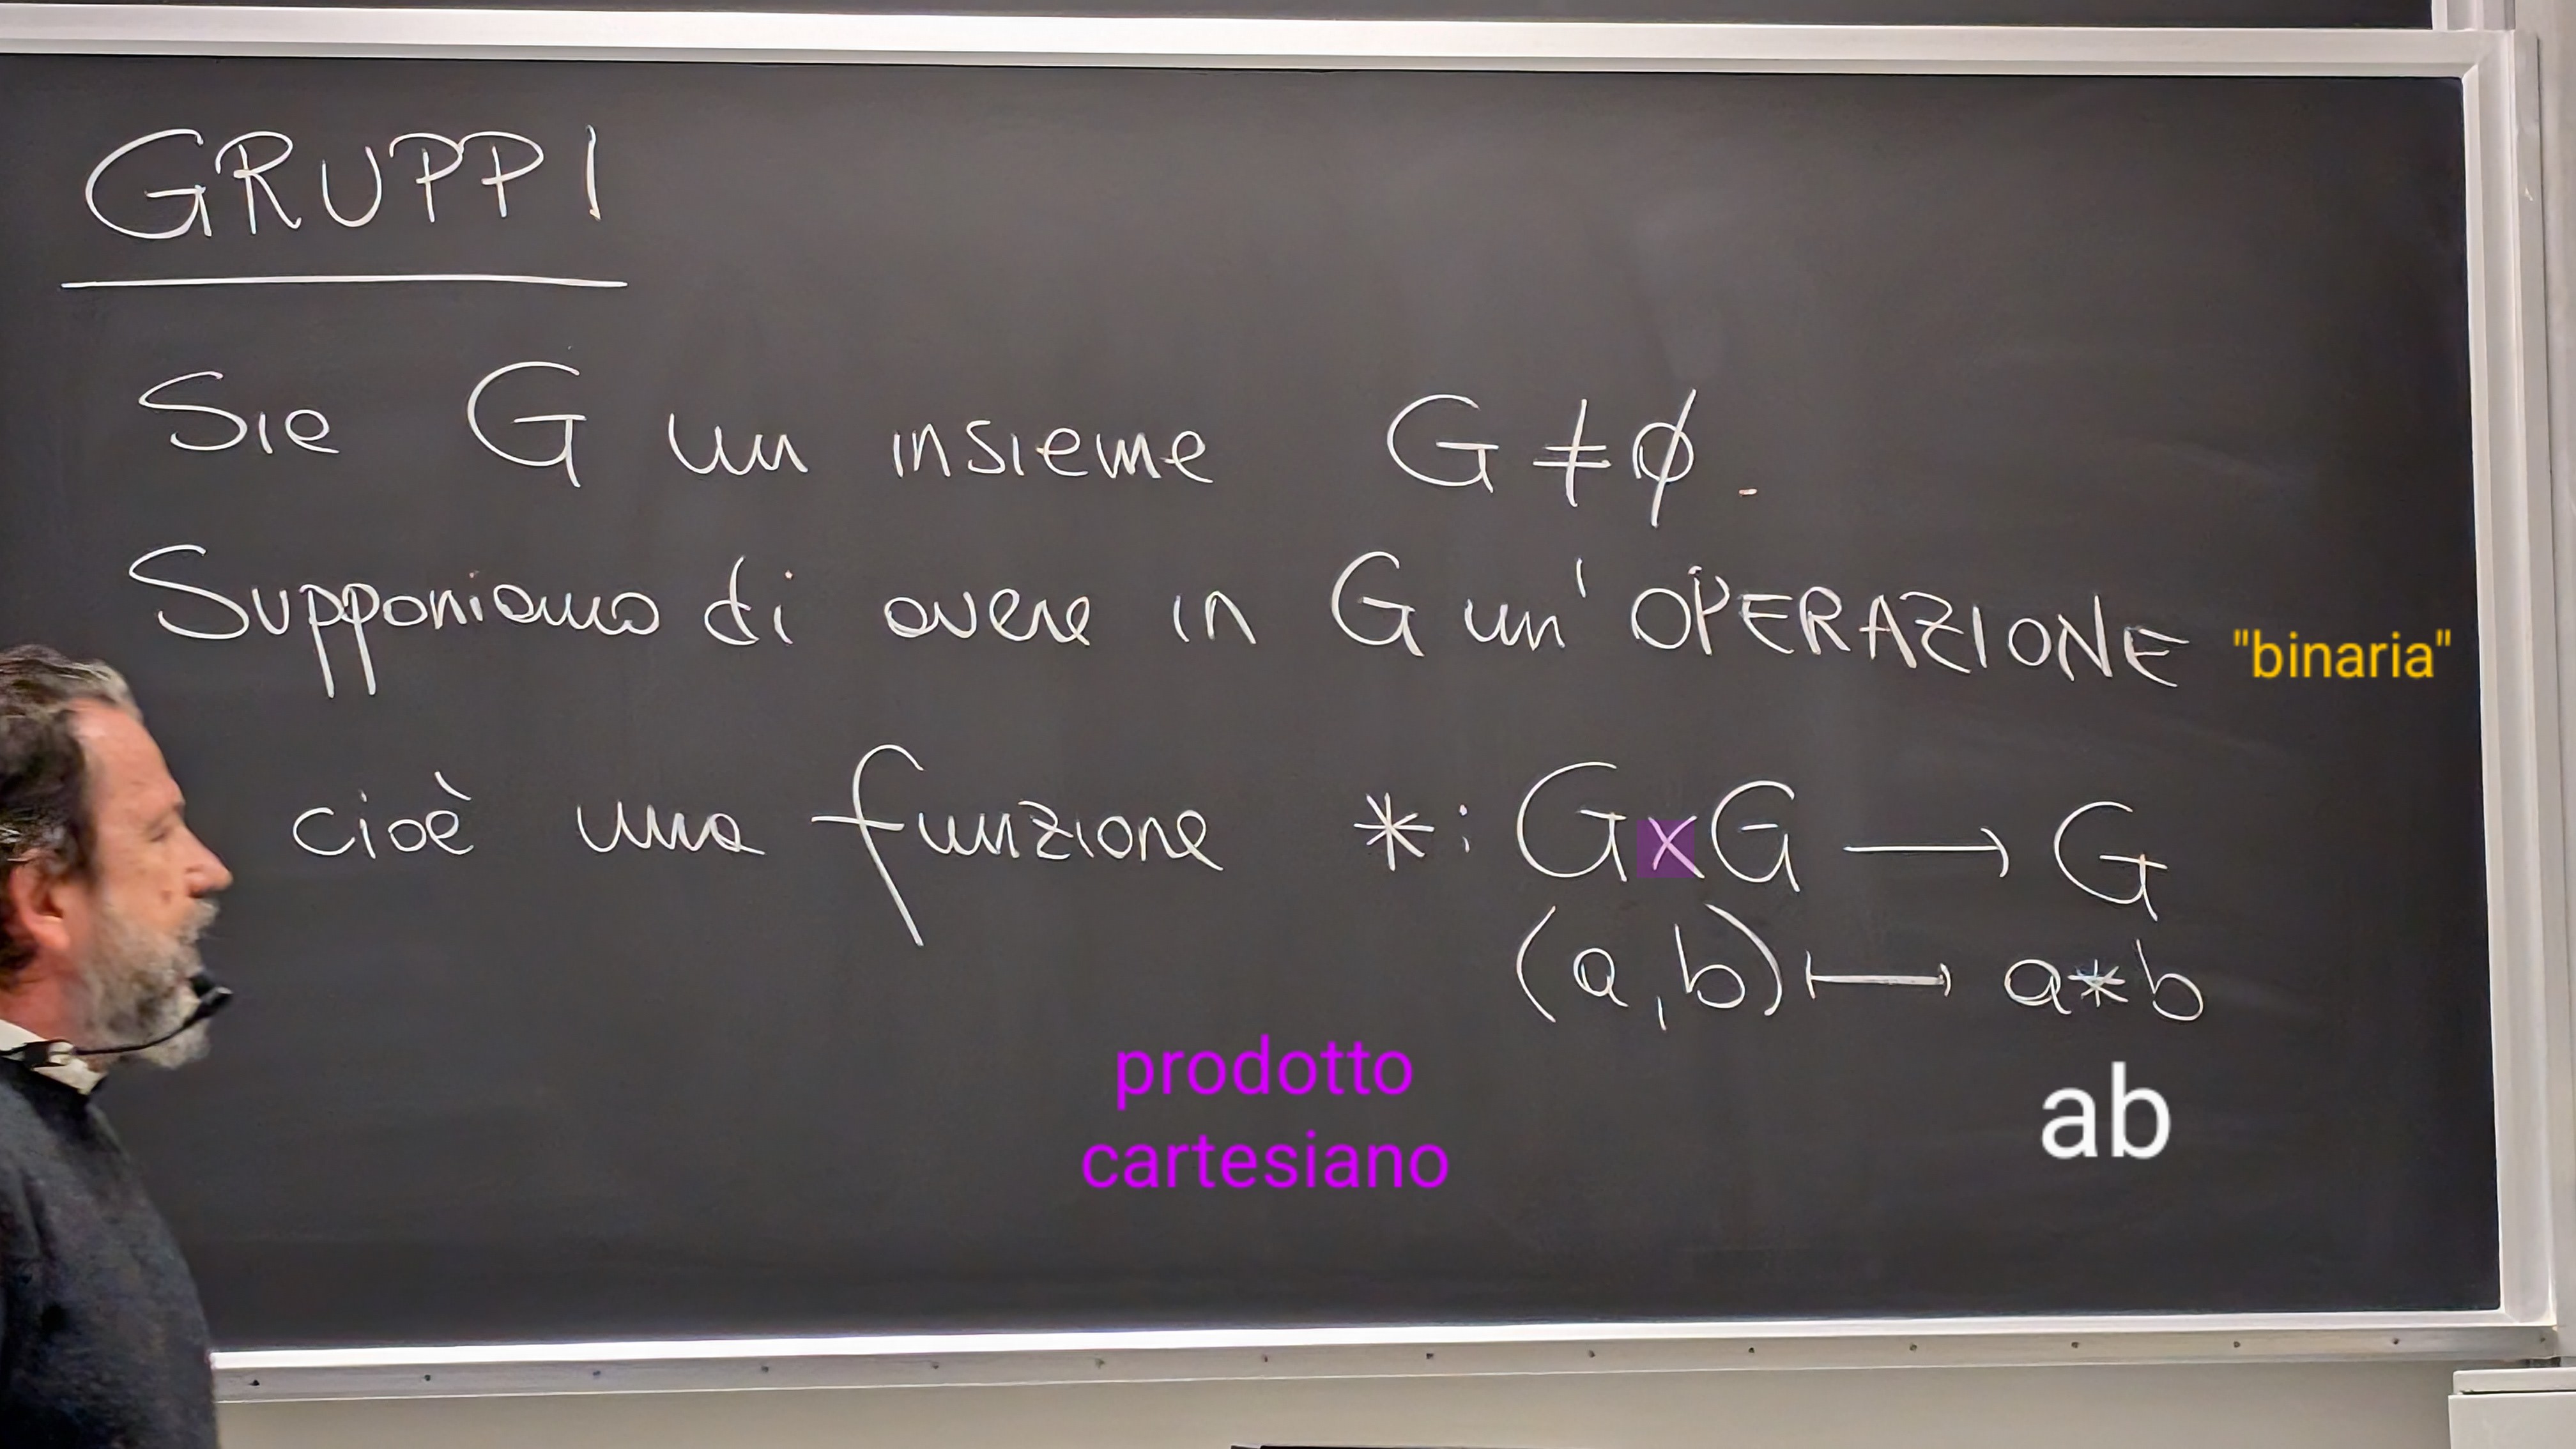 GRUPPI
Sia G un insieme G ≠ ∅.
Supponiamo di avere in G un' OPERAZIONE "binaria"
cioè una funzione *: G×G → G
(a,b) ↦ a*b
prodotto
cartesiano
ab